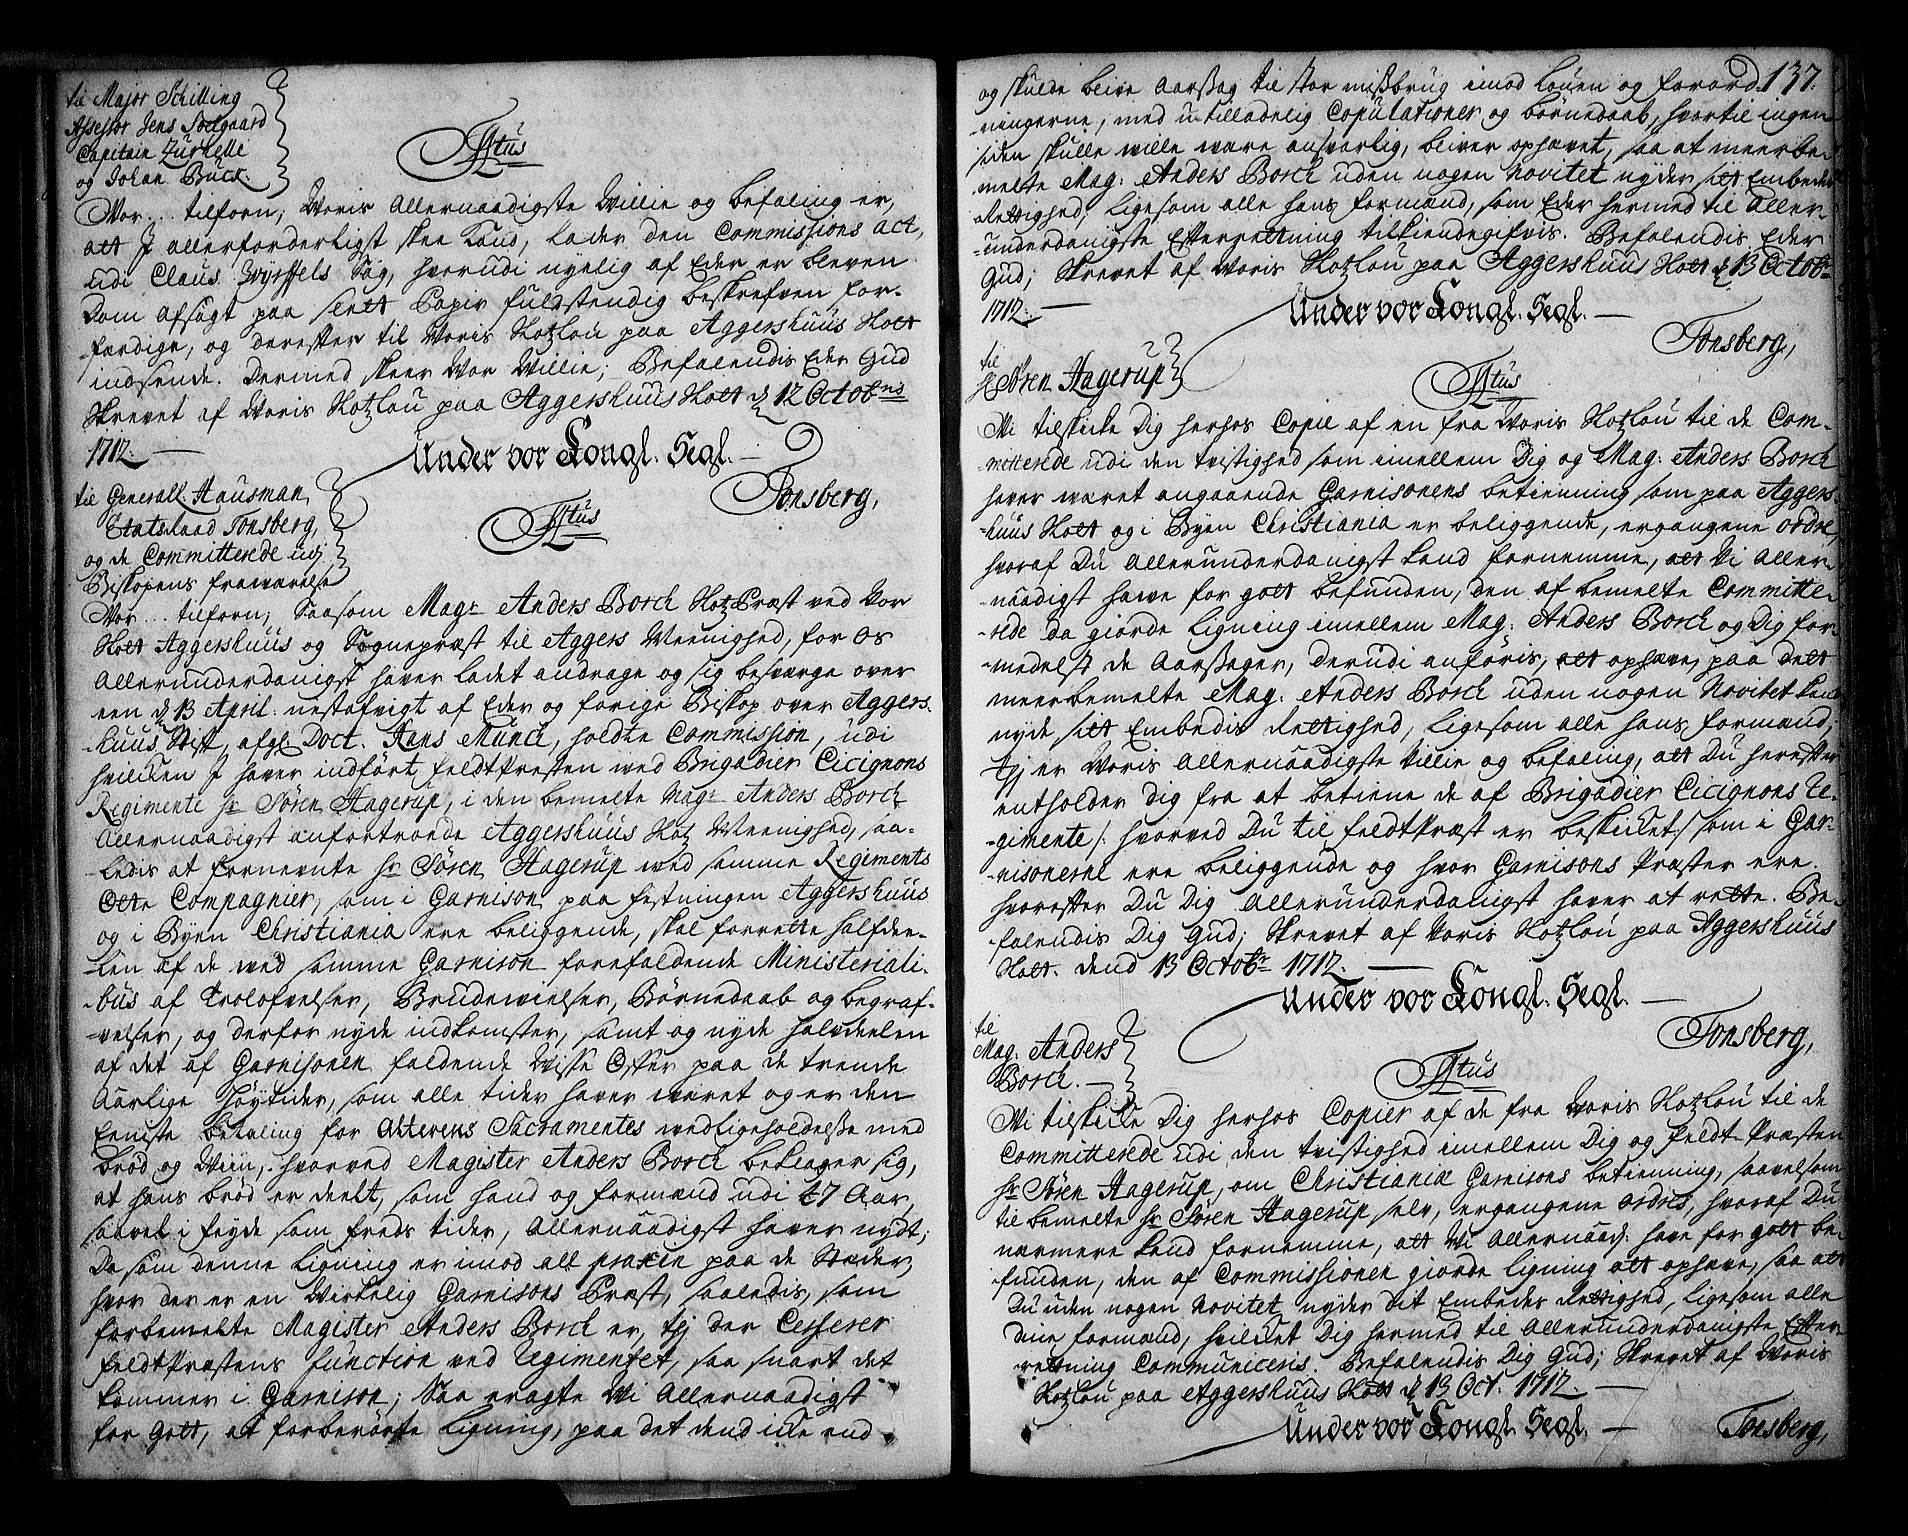 til Major Schilling
Assessor Jens Soelgaard
Capitain Zurhelle
og Johan Buck.
Ttus
Vor... tilforn, Voris Allernaadigste Willie og befaling er,
att I allerforderligst skee kand, lader den Commissions act,
udi Claus Wyssels Sag, hvorudi nylig af Eder er bleven
Dom afsagt paa slett Papir fuldstendig beskrefven for-
færdige, og derefter til Voris Slotzlou paa Aggershuus Slott
indsende. Dermed skeer Vor Willie; Befalendis Eder Gud
Skrevet af Voris Slotzlou paa Aggershuus Slott d 12 Octobris
1712.
Under vor Kongl. Segl.
Tonsberg,
til Generall: Hausman,
Etatsraad Tonsberg,
og de Committerede udj
Biskopens fraværelse
Ttus
Vor... tilforn, Saasom Magr Anders Borch SlotzPræst ved Vor
Slott Aggershuus og Sognepræst til Aggers Meenighed, for os
Allerunderdanigst haver ladet andrage og sig besværge over
een d 13 April. nestafvigt af Eder og forige Biskop over Aggers-
huus Stift, afgl Doct. Hans Munch, holdte Commission, udi
hvilcken I haver indført feldtPræsten wed Brigadier Cicignons
Regimente hr Søren Hagerup, i den bemelte Magr Anders Borch
Allernaadigst anfortroede Aggershuus Slotz Meenighed, saa-
ledis at fornevnte hr Søren Hagerup med samme Regiments
Otte Compagnier, som i Garnison paa festningen Aggershuus
og i Byen Christiania ere beliggende, skal forrette halfdee-
len af de wed samme Garnison forefaldende Ministeriali-
bus af Trolofvelser, Brudevielser, Børnedaab og begraf-
velser, og derfor nyde indkomster, samt og nyde halvdeelen
af det af Garnisonen faldende Visse Offer paa de trende
Aarlige Høytider, som alle tider haver været og er den
eeniste betaling for Alterens Sacramentes vedligeholdelse med
brød og Wiin, hvorved Magister Anders Borch beklager sig,
at hans brød er deelt, som hand og formænd udi 47 Aar,
saavel i feyde som freds tider, Allernaadigst haver nydt;
Da som denne Ligning er imod all praxin paa de Stæder,
hvor der er en Virkelig Garnisons Præst, saaledis, som
forbemelte Magister Anders Borch er, thj der Cesserer
feldtPræstens function ved Regimentet, saa snart det
kommer i Garnison; Saa eragte Vi Allernaadigst
for Gott, at forberørte Ligning, paa det dend icke end
137.
og skulde blive Aarsag til stor missbrug imod Louen og forord-
ningerne, med utilladelig Copulationer og børnedaab, hvortil ingen
siden skulle wille ware ansvarlig, bliver ophævet, saa at meerbe-
melte Mag: Anders Borch uden nogen Novitet nyder sitt Embedes
Rettighed, ligesom alle hans formænd, som Eder hermed til Aller-
underdanigste Efterrettning tilkiendegifvis. Befalendis Eder
Gud; Skrevet af Voris Slotzlou paa Aggershuus Slott d 13 Octobr
1712.
Under vor Kongl. Segl.
Tonsberg,
til
hr Søren Hagerup
Ttus
Vi tilskicke Dig herhos Copie af en fra Voris Slotzlou til de Com-
mitterede udi den tvistighed som imellem Dig og Mag: Anders Borch
haver wæret angaaende Garnisonens betienning som paa Aggers-
huus Slott og i Byen Christiania er beliggende, ergangene ordre,
hvoraf Du Allerunderdanigst kand fornemme, att Vi Aller-
naadigst have for gott befunden, den af bemelte Committe-
rede da giorde Ligning imellem Mag: Anders Borch og Dig for-
medelst de Aarsager, derudi anføris, att ophæve, paa dett
meerbemelte Mag: Anders Borch uden nogen Novitet kand
nyde sitt Embedis Rettighed, ligesom alle hans formænd;
thj er Voris Allernaadigste Villie og befaling, att Du herefter
entholder Dig fra at betiene de af Brigadier Cicignons Re-
gimente /: hvorved Du til feldtPræst er beskicket :/ som i Gar-
nisonerne ere beliggende og hvor Garnisons Præster ere.
hvorefter Du Dig Allerunderdanigst haver at rette. Be-
falendis Dig Gud; Skrevet af Voris Slotzlou paa Aggershuus
Slott. dend 13 Octobr 1712.
Under vor Kongl. Segl.
Tonsberg,
til
Mag: Anders
Borch.
Ttus
Vi tilskicke Dig herhos Copier af de fra Voris Slotzlou til de
Committerede udi den tvistighed imellem Dig og Feldt-Præsten
hr Søren Hagerup, om Christianiæ Garnisons betienning, saavelsom
til bemelte hr Søren Hagerup selv, ergangene ordres, hvoraf Du
nærmere kand fornemme, att Vi Allernaad: have for gott be-
funden, den af Commissionen giorde Ligning att ophæve, saa att
Du uden nogen Novitet nyder dit Embedes Rettighed, ligesom alle
dine formænd, hvilcket Dig hermed til Allerunderdanigste Efter-
rettning Communiceris. Befalendis Dig Gud; Skrevet af Voris
Slotzlou paa Aggershuus Slott d 13 Oct. 1712.
Under vor Kongl. Segl.
Tonsberg,